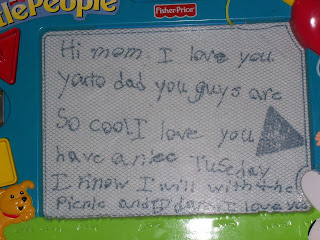 lePeople
Fisher-Price
Hi mom. I love you
youto dad you guys are
So cool I love you
have a nice Tuseday
I know I will with the
Picnic and
I love you